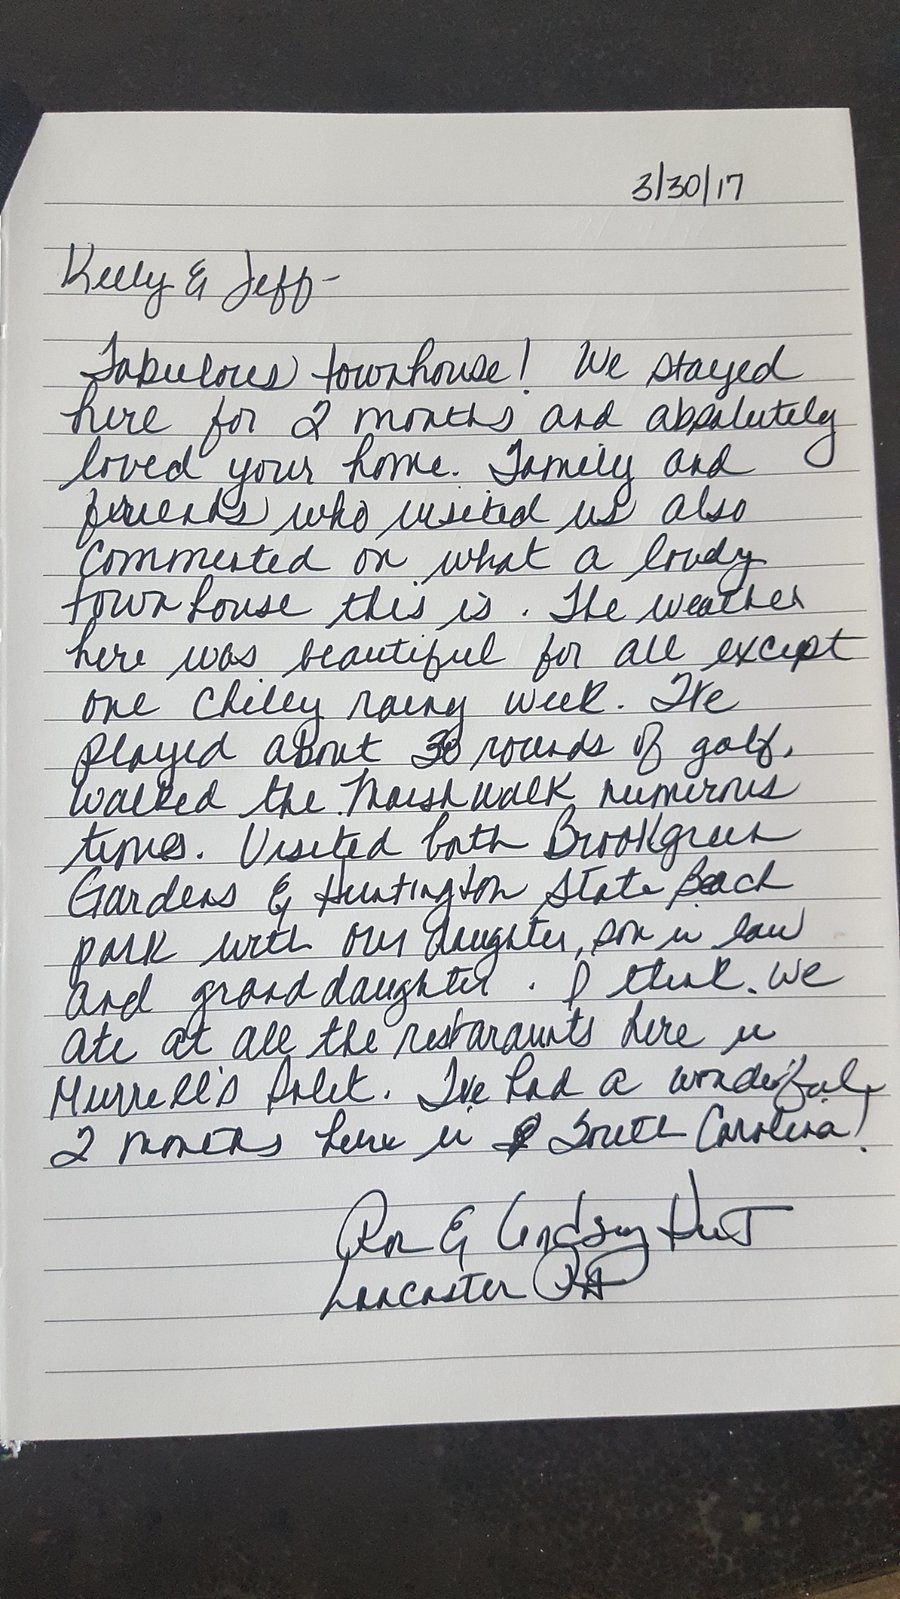 3/30/17
Kelly & Jeff-
Fabulous townhouse! We stayed
here for 2 months and absolutely
loved your home. Family and
friends who visited us also
commented on what a lovely
townhouse this is. The weather
here was beautiful for all except
one chilly rainy week. I've
played about 30 rounds of golf,
walked the Marshwalk numerous
times. Visited both Brookgreen
Gardens & Huntington State Beach
park with our daughter, son in law
and granddaughter. I think we
ate at all the restaraunts here in
Murrell's Inlet. I've had a wonderful
2 months here in South Carolina!
Ron & Lindsey
Lancaster PA